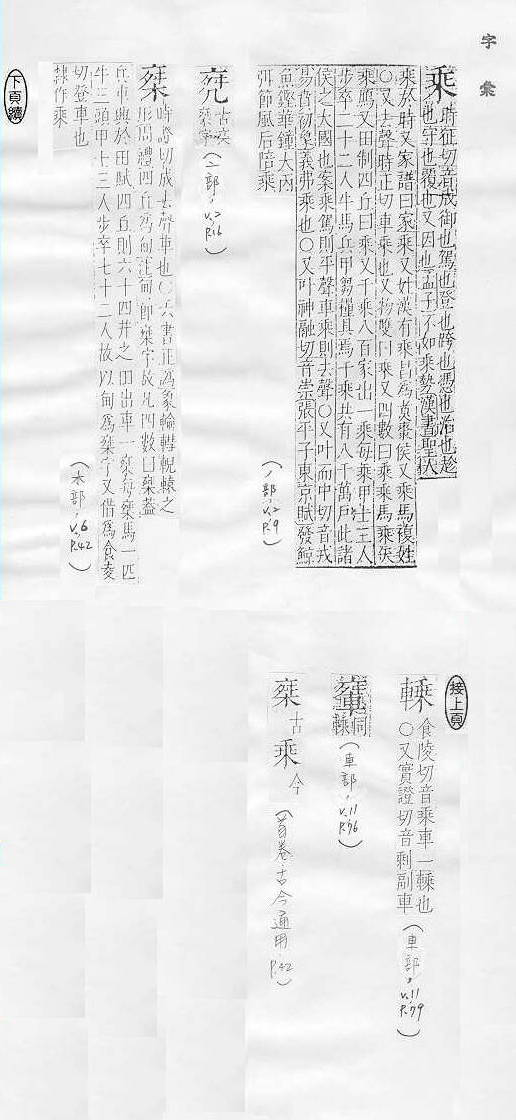 字彙
乘 時征切音成御也駕也登也跨也憑也治也趁
也守也覆也又因也孟子不如乘勢漢書聖伏
乘於時又家譜曰家乘又姓漢有乘昌為煑棗侯又乘馬複姓
○又去聲時正切車乘也又物雙曰乘又四數曰乘乘馬乘矢
乘鴈又田制四丘曰乘又千乘八百家出一乘每乘甲士三人
步卒二十二人牛馬兵甲芻糧具焉千乘共有八千萬戶此諸
侯之大國也案乘駕則平聲車乘則去聲○又叶神融切音崇張平子東京賦發鯨
魚鏗華鐘大丙
弭節風后陪乘
(丿部,v.2
p.9)
古文
(二部,v.2
p.16)
椉 時證切成去聲車也○六書正譌象輪轊軏轅之
形周禮四丘為甸注甸即椉字故凡四數曰椉葢
兵車與於田賦四丘則六十四井之田出車一椉每椉馬一匹
牛三頭甲士三人步卒七十二人故以甸為椉字又借為食夌
切登車也
隸作乘
(木部,v.6
p.42)
下頁續
接上頁
䡴 食陵切音乘車一䡴也
○又實證切音剩副車
(車部,v.11
p.79)
同
䡴
(車部,v.11
p.76)
椉古乘今
(首卷古今通用
p.42)